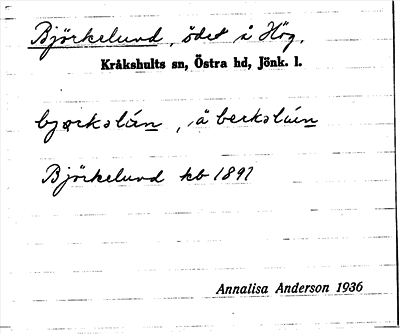 Björkelund, ödet i Hög.
Kråkshults sn, Östra hd, Jönk. l.
bjørkəlún, ,ä berkəlún
Björkelund kb 1891
Annalisa Anderson 1936